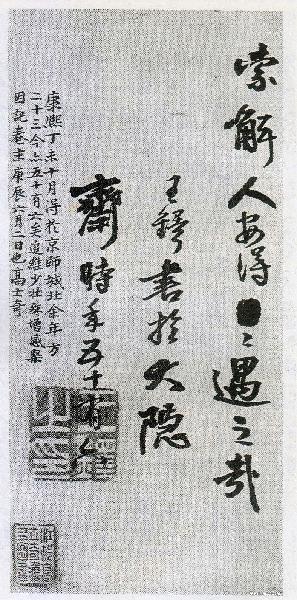 索解人安得〻遇之哉
王鐸書於大隱
齋時年五十有
康熙丁未十月得於京師城北余年方
二十三今已五十有六矣追維少壯殊增感槩
因記卷末庚辰六月二日也高士奇